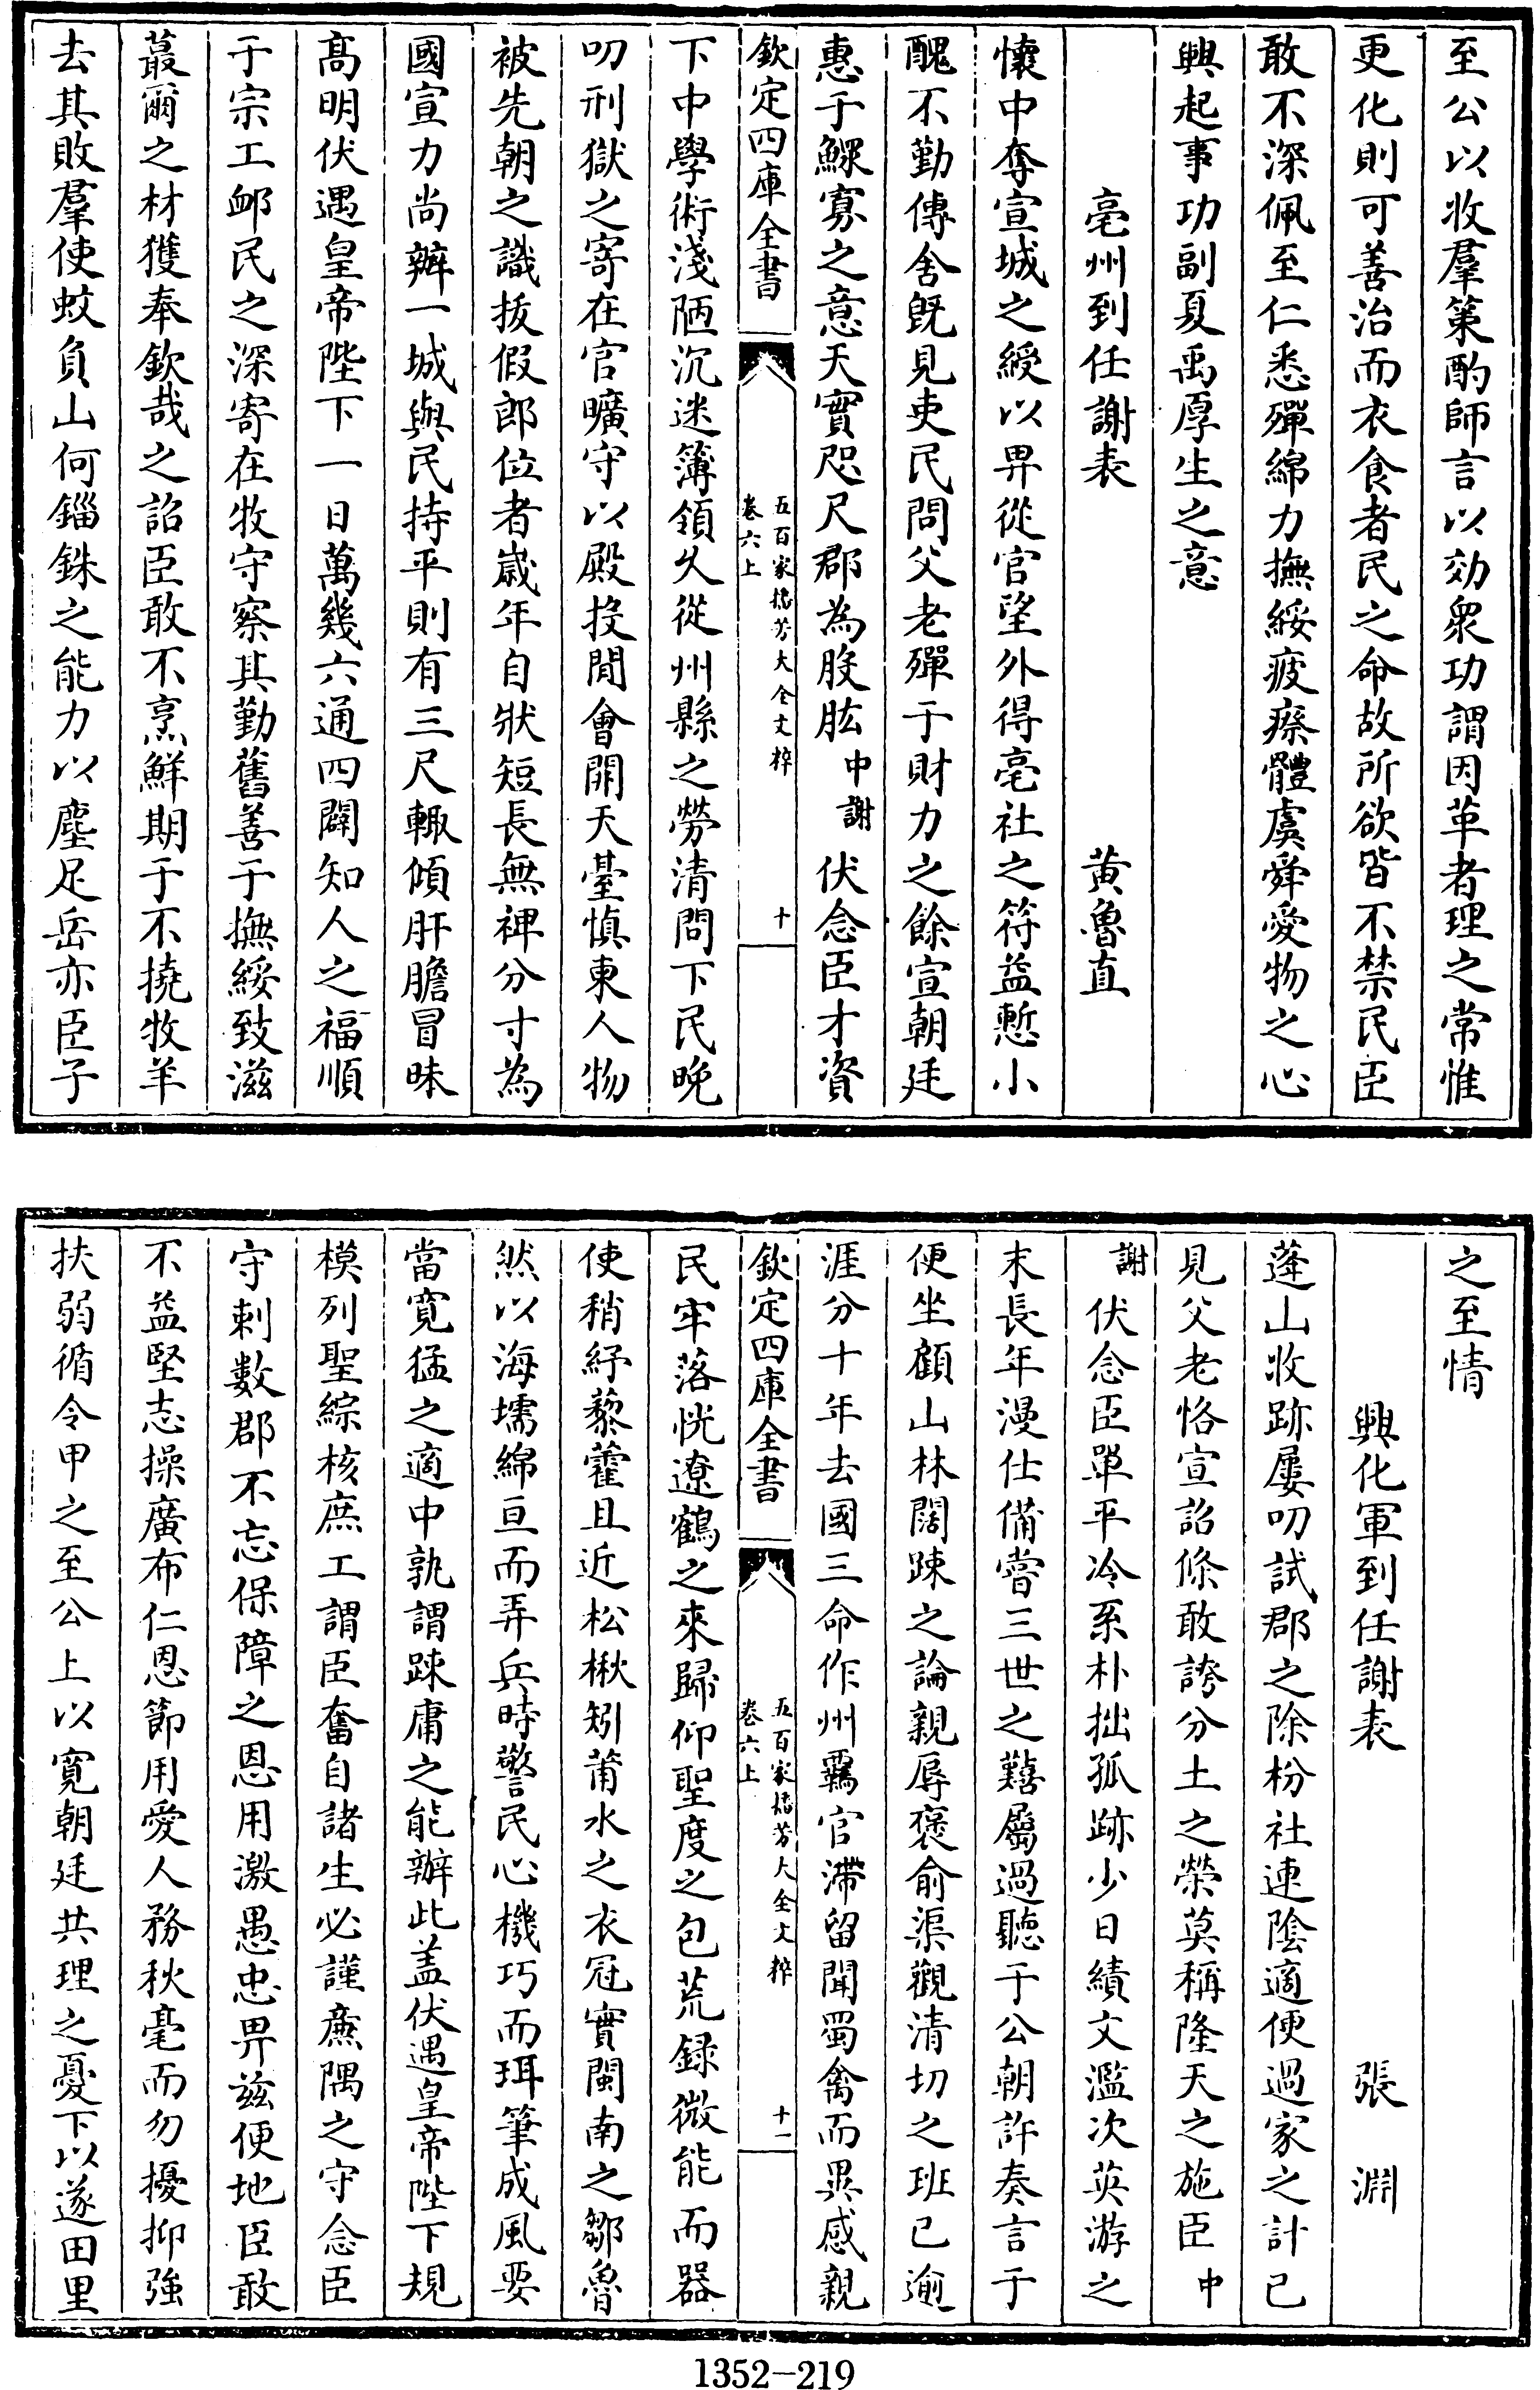 至公以收羣策酌師言以効衆功謂因革者理之常惟
更化則可善治而衣食者民之命故所欲皆不禁民臣
敢不深佩至仁悉殫綿力撫綏疲瘵體虞舜愛物之心
興起事功副夏禹厚生之意
亳州到任謝表　黄魯直
懐中奪宣城之綬以畀從官望外得亳社之符益慙小
醜不勤傳舍既見吏民問父老殫于財力之餘宣朝廷
惠于鰥寡之意天實咫尺郡為股肱中謝伏念臣才資
欽定四庫全書　五百家播芳大全文粹卷六上　十
下中學術淺陋沉迷簿領久從州縣之勞清問下民晚
叨刑獄之寄在官曠守以殿投閒會開天臺慎柬人物
被先朝之識拔假郎位者歳年自狀短長無裨分寸為
國宣力尚辦一城與民持平則有三尺輙傾肝膽冒昧
髙明伏遇皇帝陛下一日萬幾六通四闢知人之福順
于宗工衈民之深寄在牧守察其勤舊善于撫綏致滋
蕞爾之材獲奉欽哉之詔臣敢不烹鮮期于不撓牧羊
去其敗羣使蚊負山何錙銖之能力以塵足岳亦臣子
之至情
興化軍到任謝表　張淵
蓬山收跡屢叨試郡之除枌社連陰適便過家之計已
見父老恪宣詔條敢誇分土之榮莫稱隆天之施臣中
謝伏念臣單平冷系朴拙孤跡少日績文濫次英游之
末長年漫仕備嘗三世之囏屬過聽于公朝許奏言于
便坐顧山林闊踈之論親辱褒俞渠觀清切之班已逾
涯分十年去國三命作州羈官滯留聞蜀禽而異感親
欽定四庫全書　五百家播芳大全文粹卷六上　十一
民牢落恍遼鶴之來歸仰聖度之包荒録微能而器
使稍紓藜藿且近松楸矧莆水之衣冠實閩南之鄒魯
然以海壖綿亘而弄兵時警民心機巧而珥筆成風要
當寛猛之適中孰謂踈庸之能辦此盖伏遇皇帝陛下規
模列聖綜核庶工謂臣奮自諸生必謹亷隅之守念臣
守剌數郡不忘保障之恩用激愚忠畀兹便地臣敢
不益堅志操廣布仁恩節用愛人務秋毫而勿擾抑強
扶弱循令甲之至公上以寛朝廷共理之憂下以遂田里
1352-219